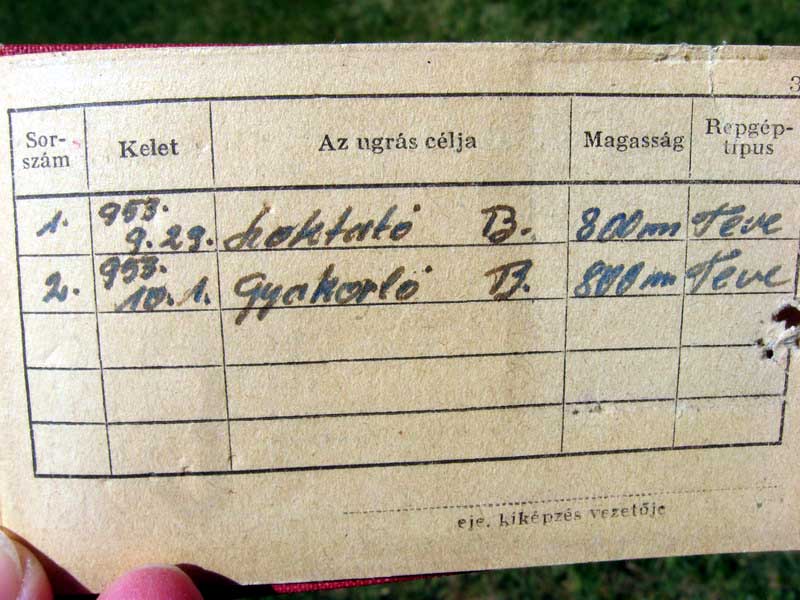 3
Sor-
szám Kelet Az ugrás célja Magasság Repgép-
típus
1. 953.
9.29. szoktató B. 800m Teve
2. 953.
10.1. Gyakorló B. 800m Teve
eje. kiképzés vezetője